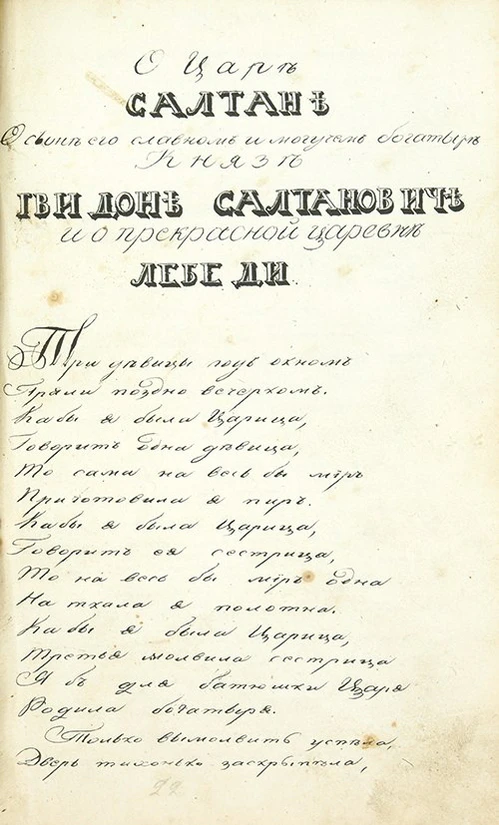 О Царѣ
САЛТАНѢ
О сынѣ его славномъ и могучемъ богатырѣ
Князѣ
ГВИДОНѢ САЛТАНОВИЧѢ
и о прекрасной царевнѣ
ЛЕБЕДИ
Три дѣвицы подъ окномъ
Пряли поздно вечеркомъ.
Кабы я была Царица,
Говоритъ одна дѣвица,
То сама на весь бы мiръ
Приготовила я пиръ.
Кабы я была Царица,
Говоритъ ея сестрица,
То на весь бы мiръ одна
Наткала я полотна.
Кабы я была Царица,
Третья молвила сестрица
Я бъ для батюшки Царя
Родила богатыря.
Только вымолвить успѣла,
Дверь тихонько заскрыпѣла,
22